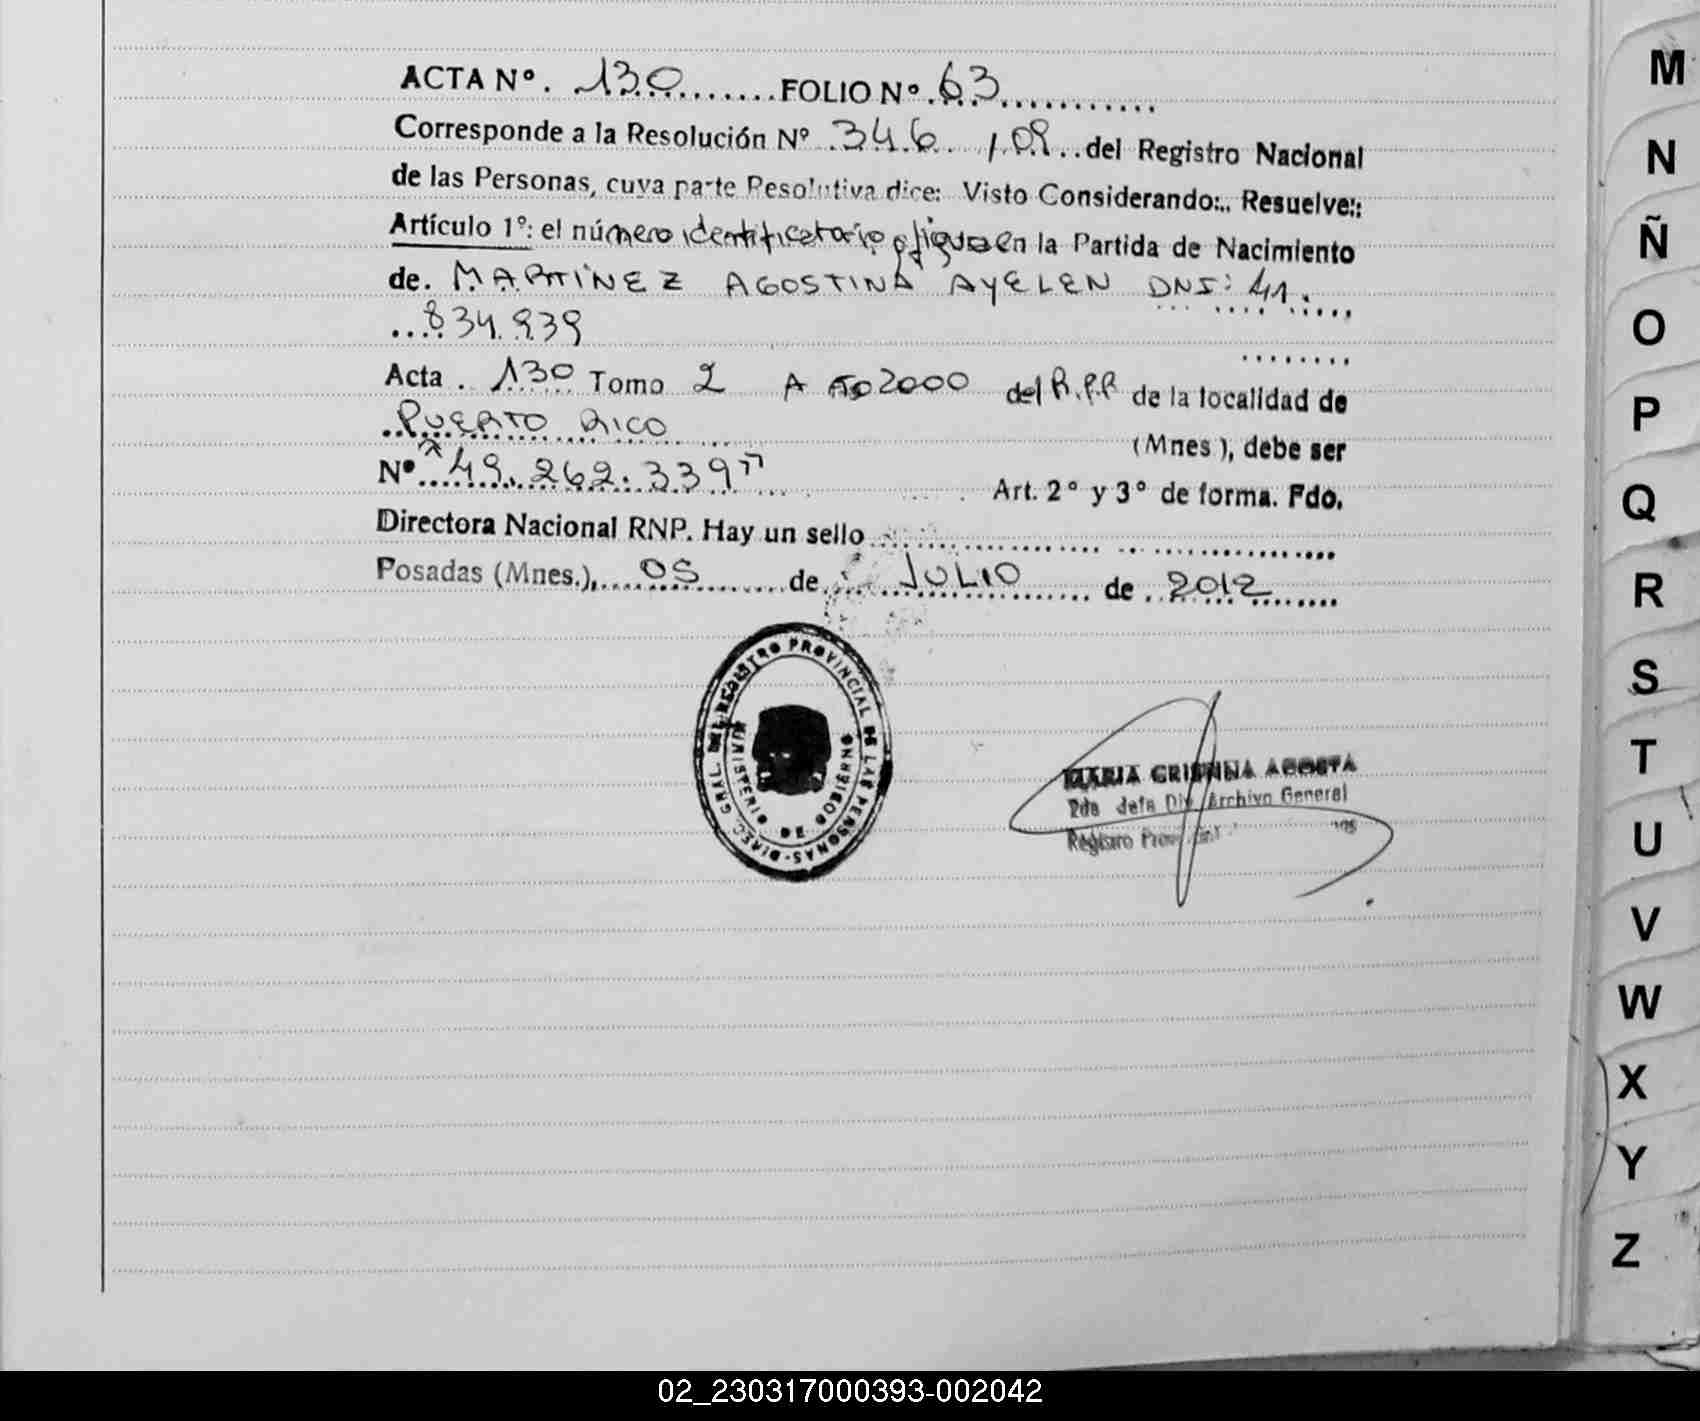 ACTA Nº. 130 FOLIO Nº. 63
Corresponde a la Resolución Nº 346 /09 del Registro Nacional
de las Personas, cuya parte Resolutiva dice: Visto Considerando:.. Resuelve::
Artículo 1º: el número identificatorio q figura en la Partida de Nacimiento
de. MARTINEZ AGOSTINA AYELEN DNI: 41.
834.939
Acta . 130 Tomo 2 A Año 2000 del R.P.P de la localidad de
PUERTO RICO
(Mnes ), debe ser
Nº "49.262.339"
Art. 2º y 3º de forma. Fdo.
Directora Nacional RNP. Hay un sello
Posadas (Mnes.), 05 de JULIO de 2012
DIREC. GRAL. DEL REGISTRO PROVINCIAL DE LAS PERSONAS
MINISTERIO DE GOBIERNO
MARIA CRISTINA ACOSTA
2da Jefa Div. Archivo General
Registro
M
N
Ñ
O
P
Q
R
S
T
U
V
W
X
Y
Z
02_230317000393-002042